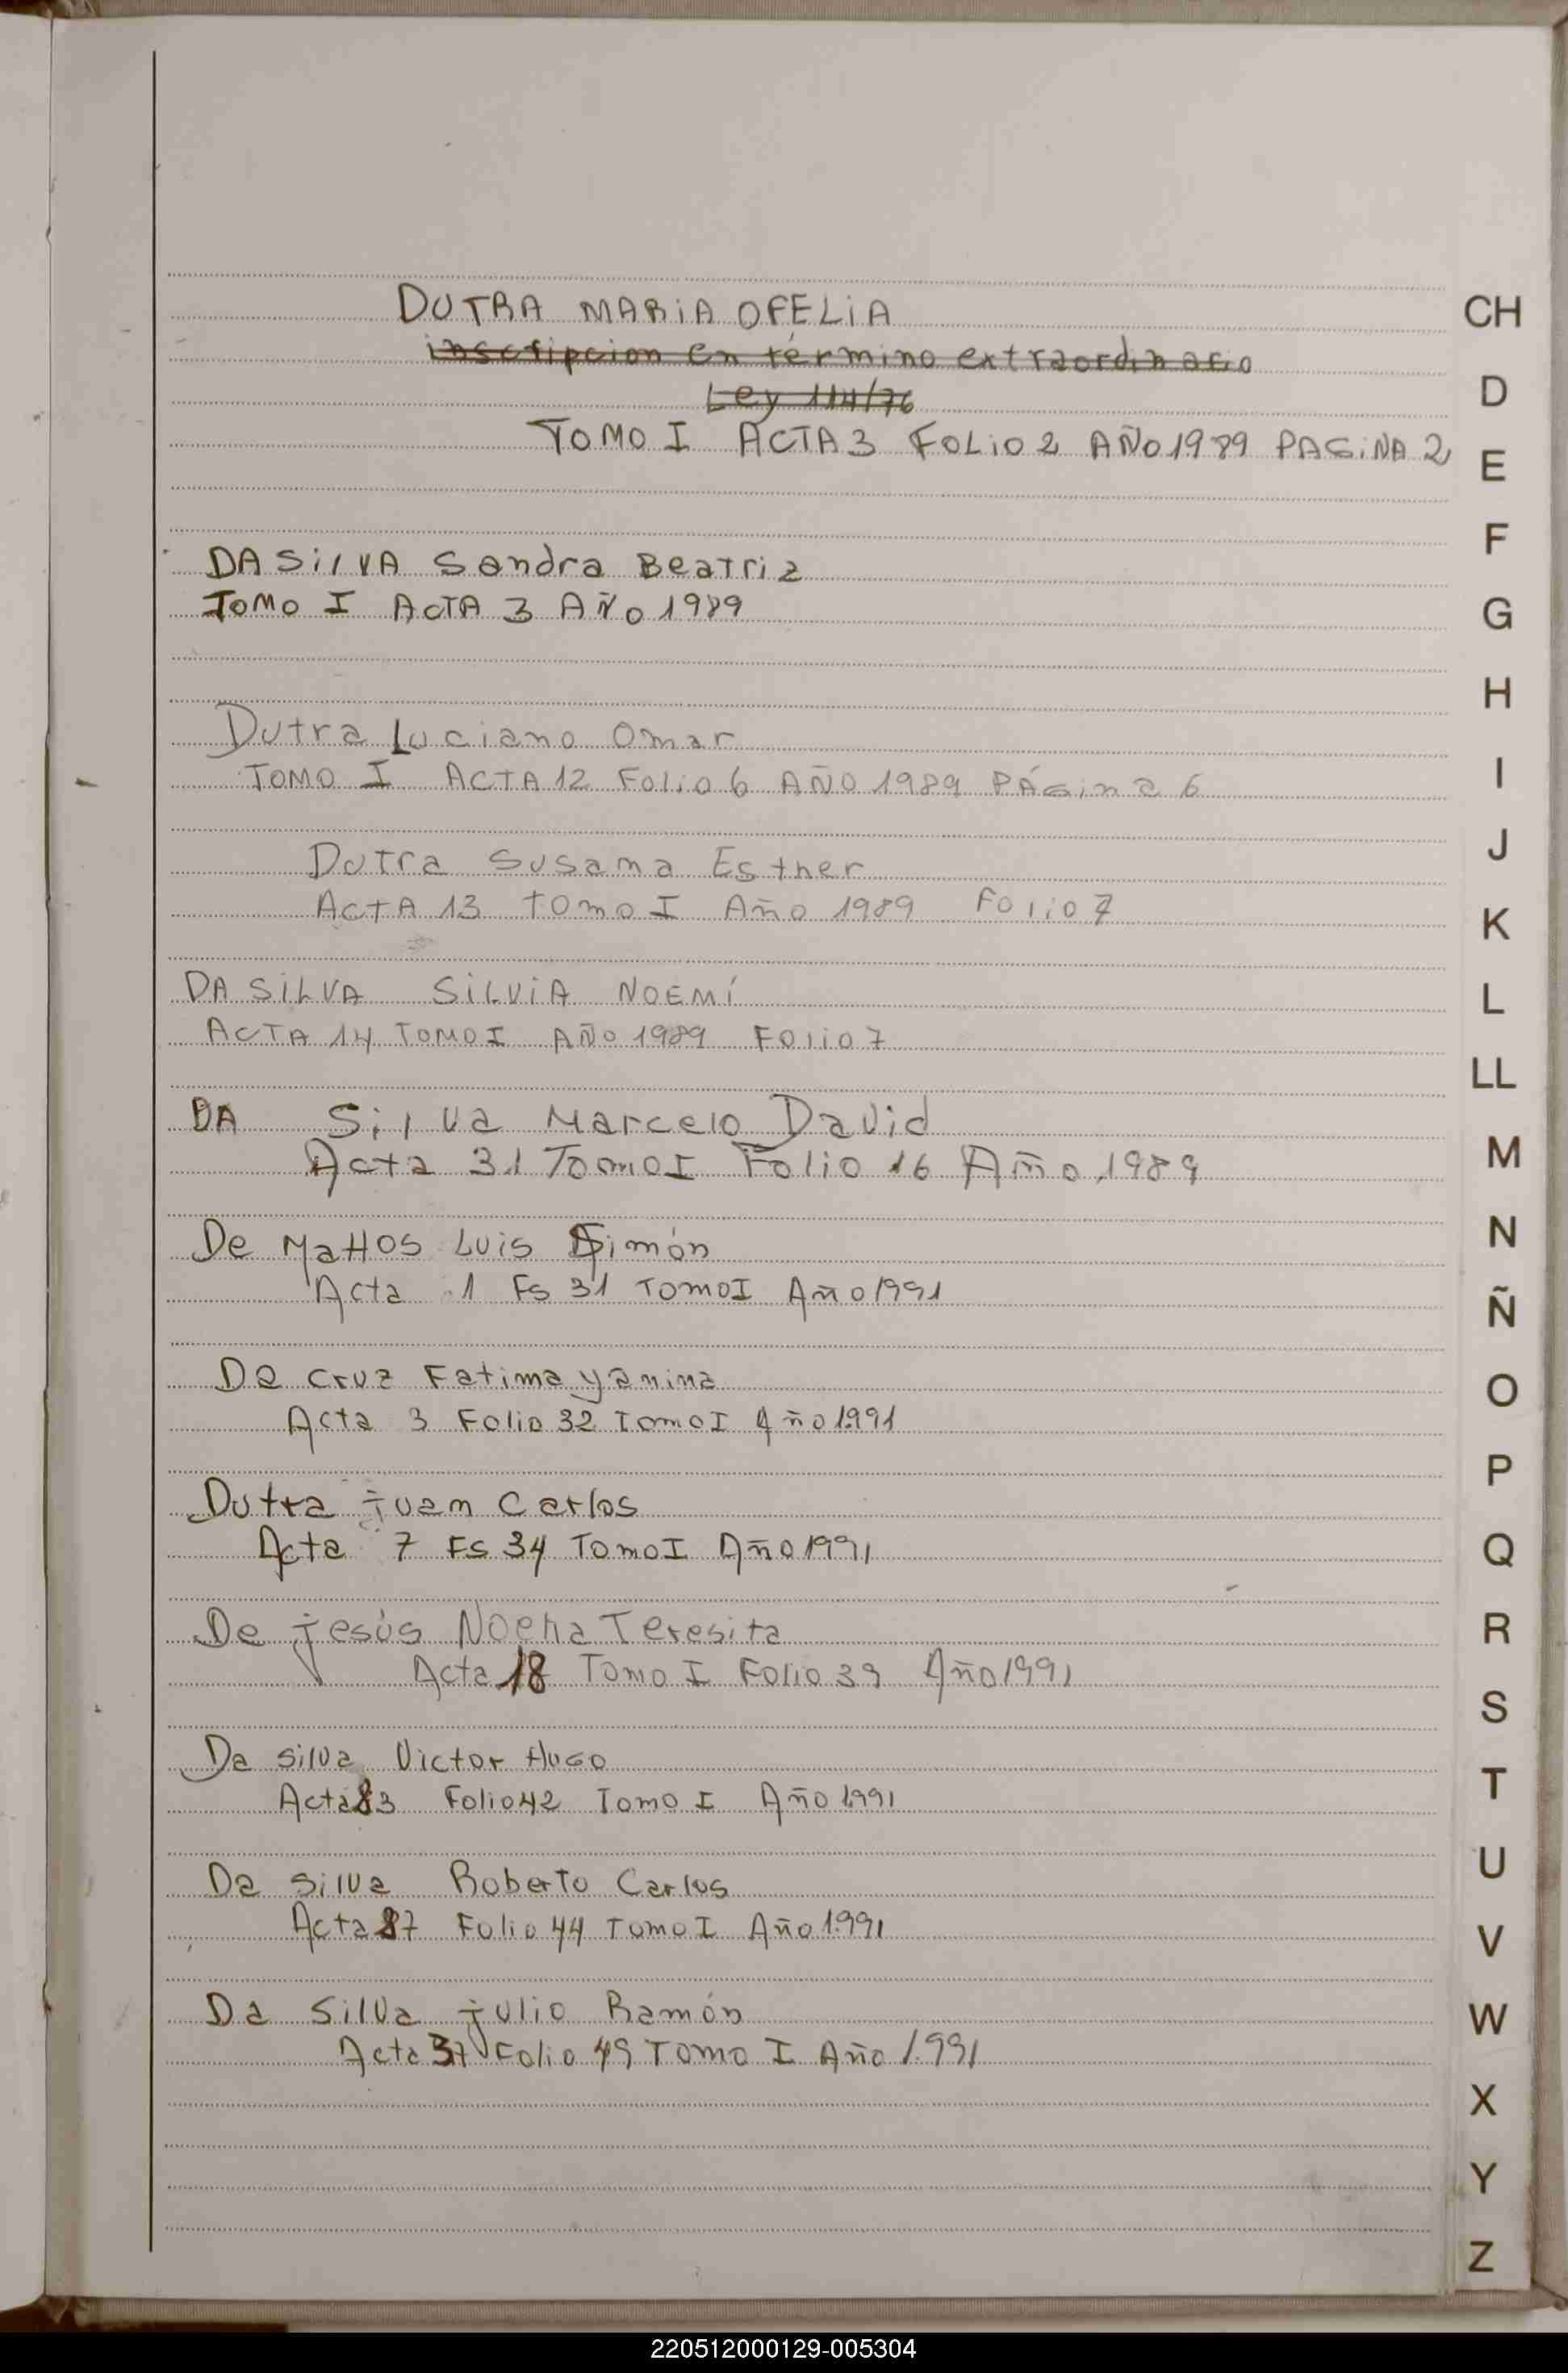 DUTRA MARIA OFELIA
inscripcion en término extraordinario
Ley 114/76
TOMO I ACTA 3 FOLIO 2 AÑO 1989 PAGINA 2
DA SILVA Sandra Beatriz
TOMO I ACTA 3 AÑO 1989
Dutra Luciano Omar
TOMO I ACTA 12 Folio 6 AÑO 1989 PÁGina 6
Dutra Susana Esther
ACTA 13 TOmo I Año 1989 Folio 7
DA SILVA SILVIA NOEMÍ
ACTA 14 TOMO I AÑO 1989 Folio 7
DA Silva Marcelo David
Acta 31 Tomo I Folio 16 Año 1989
De Mattos Luis Simón
Acta 1 Fs 31 Tomo I Año 1991
De Cruz Fatima Yanina
Acta 3 Folio 32 Tomo I Año 1991
Dutra Juan Carlos
Acta 7 Fs 34 Tomo I Año 1991
De Jesús Teresita
Acta 18 Tomo I Folio 39 Año 1991
Da Silva Victor Hugo
Acta 83 Folio 42 Tomo I Año 1991
Da Silva Roberto Carlos
Acta 87 Folio 44 Tomo I Año 1991
Da Silva Julio Ramón
Acta 37 Folio 49 Tomo I Año 1.991
CH
D
E
F
G
H
I
J
K
L
LL
M
N
Ñ
O
P
Q
R
S
T
U
V
W
X
Y
Z
220512000129-005304